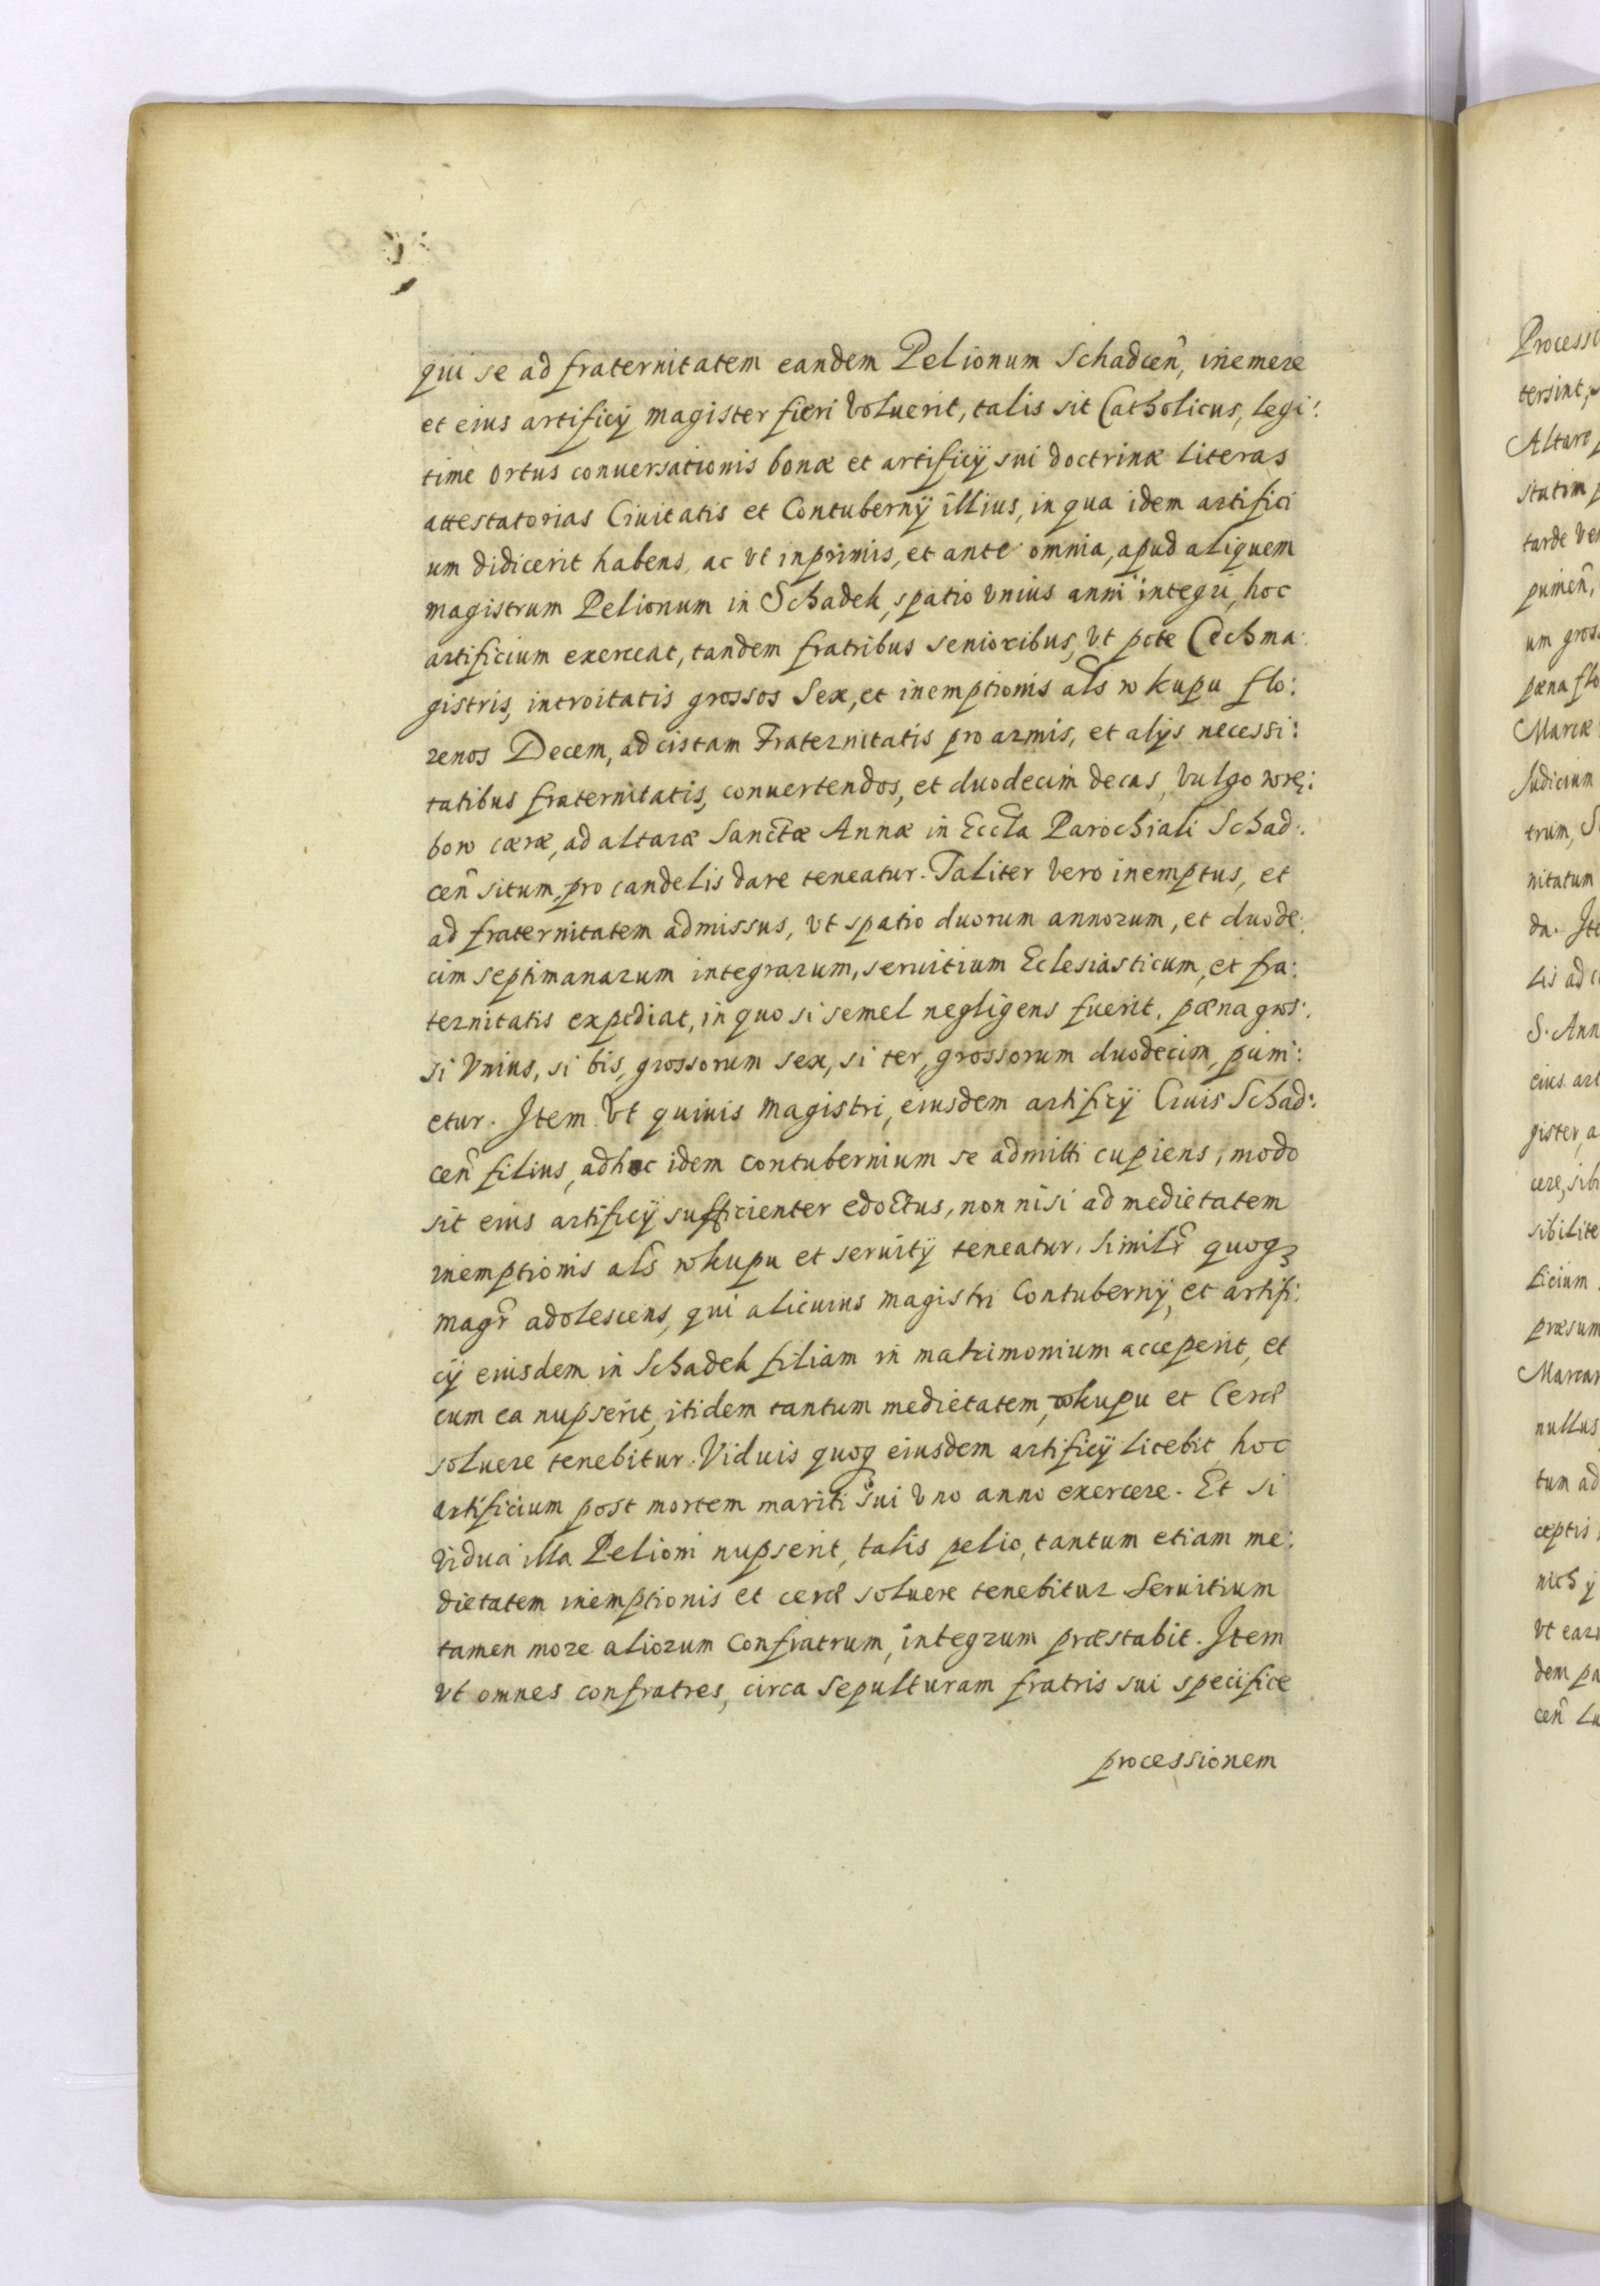 qui se ad fraternitatem eandem Pelionum Schadcen̄, inemere
et eius artificÿ magister fieri voluerit, talis sit Catholicus, legi:
time ortus conuersationis bonæ et artificÿ sui doctrinæ literas
attestatorias Ciuitatis et Contubernÿ illius, in qua idem artifici
um didicerit habens, ac vt inprimis, et ante omnia, apud aliquem
magistrum Pelionum in Schadek, spatio vnius anni integri, hoc
artificium exerceat, tandem fratribus senioribus, vt pote Cechma:
gistris, introitatis grossos Sex, et inemptionis als wkupu flo:
renos Decem, ad cistam Fraternitatis pro armis, et alÿs necessi:
tatibus fraternitatis, conuertendos, et duodecim decas, vulgo wrę:
bow cæræ, ad altaræ Sanctæ Annæ in Eccl̄a Parochiali Schad:
cen̄ situm, pro candelis dare teneatur. Taliter vero inemptus, et
ad fraternitatem admissus, vt spatio duorum annorum, et duode:
cim septimanarum integrarum, seruitium Eclesiasticum, et fra:
ternitatis expediat, in quo si semel negligens fuerit, pæna gros:
si vnius, si bis, grossorum sex, si ter, grossorum duodecim, puni:
etur. Item vt quiuis magistri, eiusdem artificÿ Ciuis Schad:
cen̄ filius, ad hoc idem contubernium se admitti cupiens, modo
sit eius artificÿ sufficienter edoctus, non nisi ad medietatem
inemptionis als̄ wkupu et seruitÿ teneatur. Similr̄ quoqꝫ
magr̄ adolescens, qui alicuius magistri Contubernÿ, et artifi:
cÿ eiusdem in Schadek filiam in matrimonium acceperit, et
cum ea nupserit, itidem tantum medietatem, wkupu et Ceræ
soluere tenebitur. Viduis quoq eiusdem artificÿ licebit, hoc
artificium post mortem mariti sui vno anno exercere. Et si
vidua illa Pelioni nupserit, talis pelio, tantum etiam me:
dietatem inemptionis et ceræ soluere tenebitur Seruitium
tamen more aliorum Confratrum, integrum præstabit. Item
vt omnes confratres, circa Sepulturam fratris sui specifice
processionem